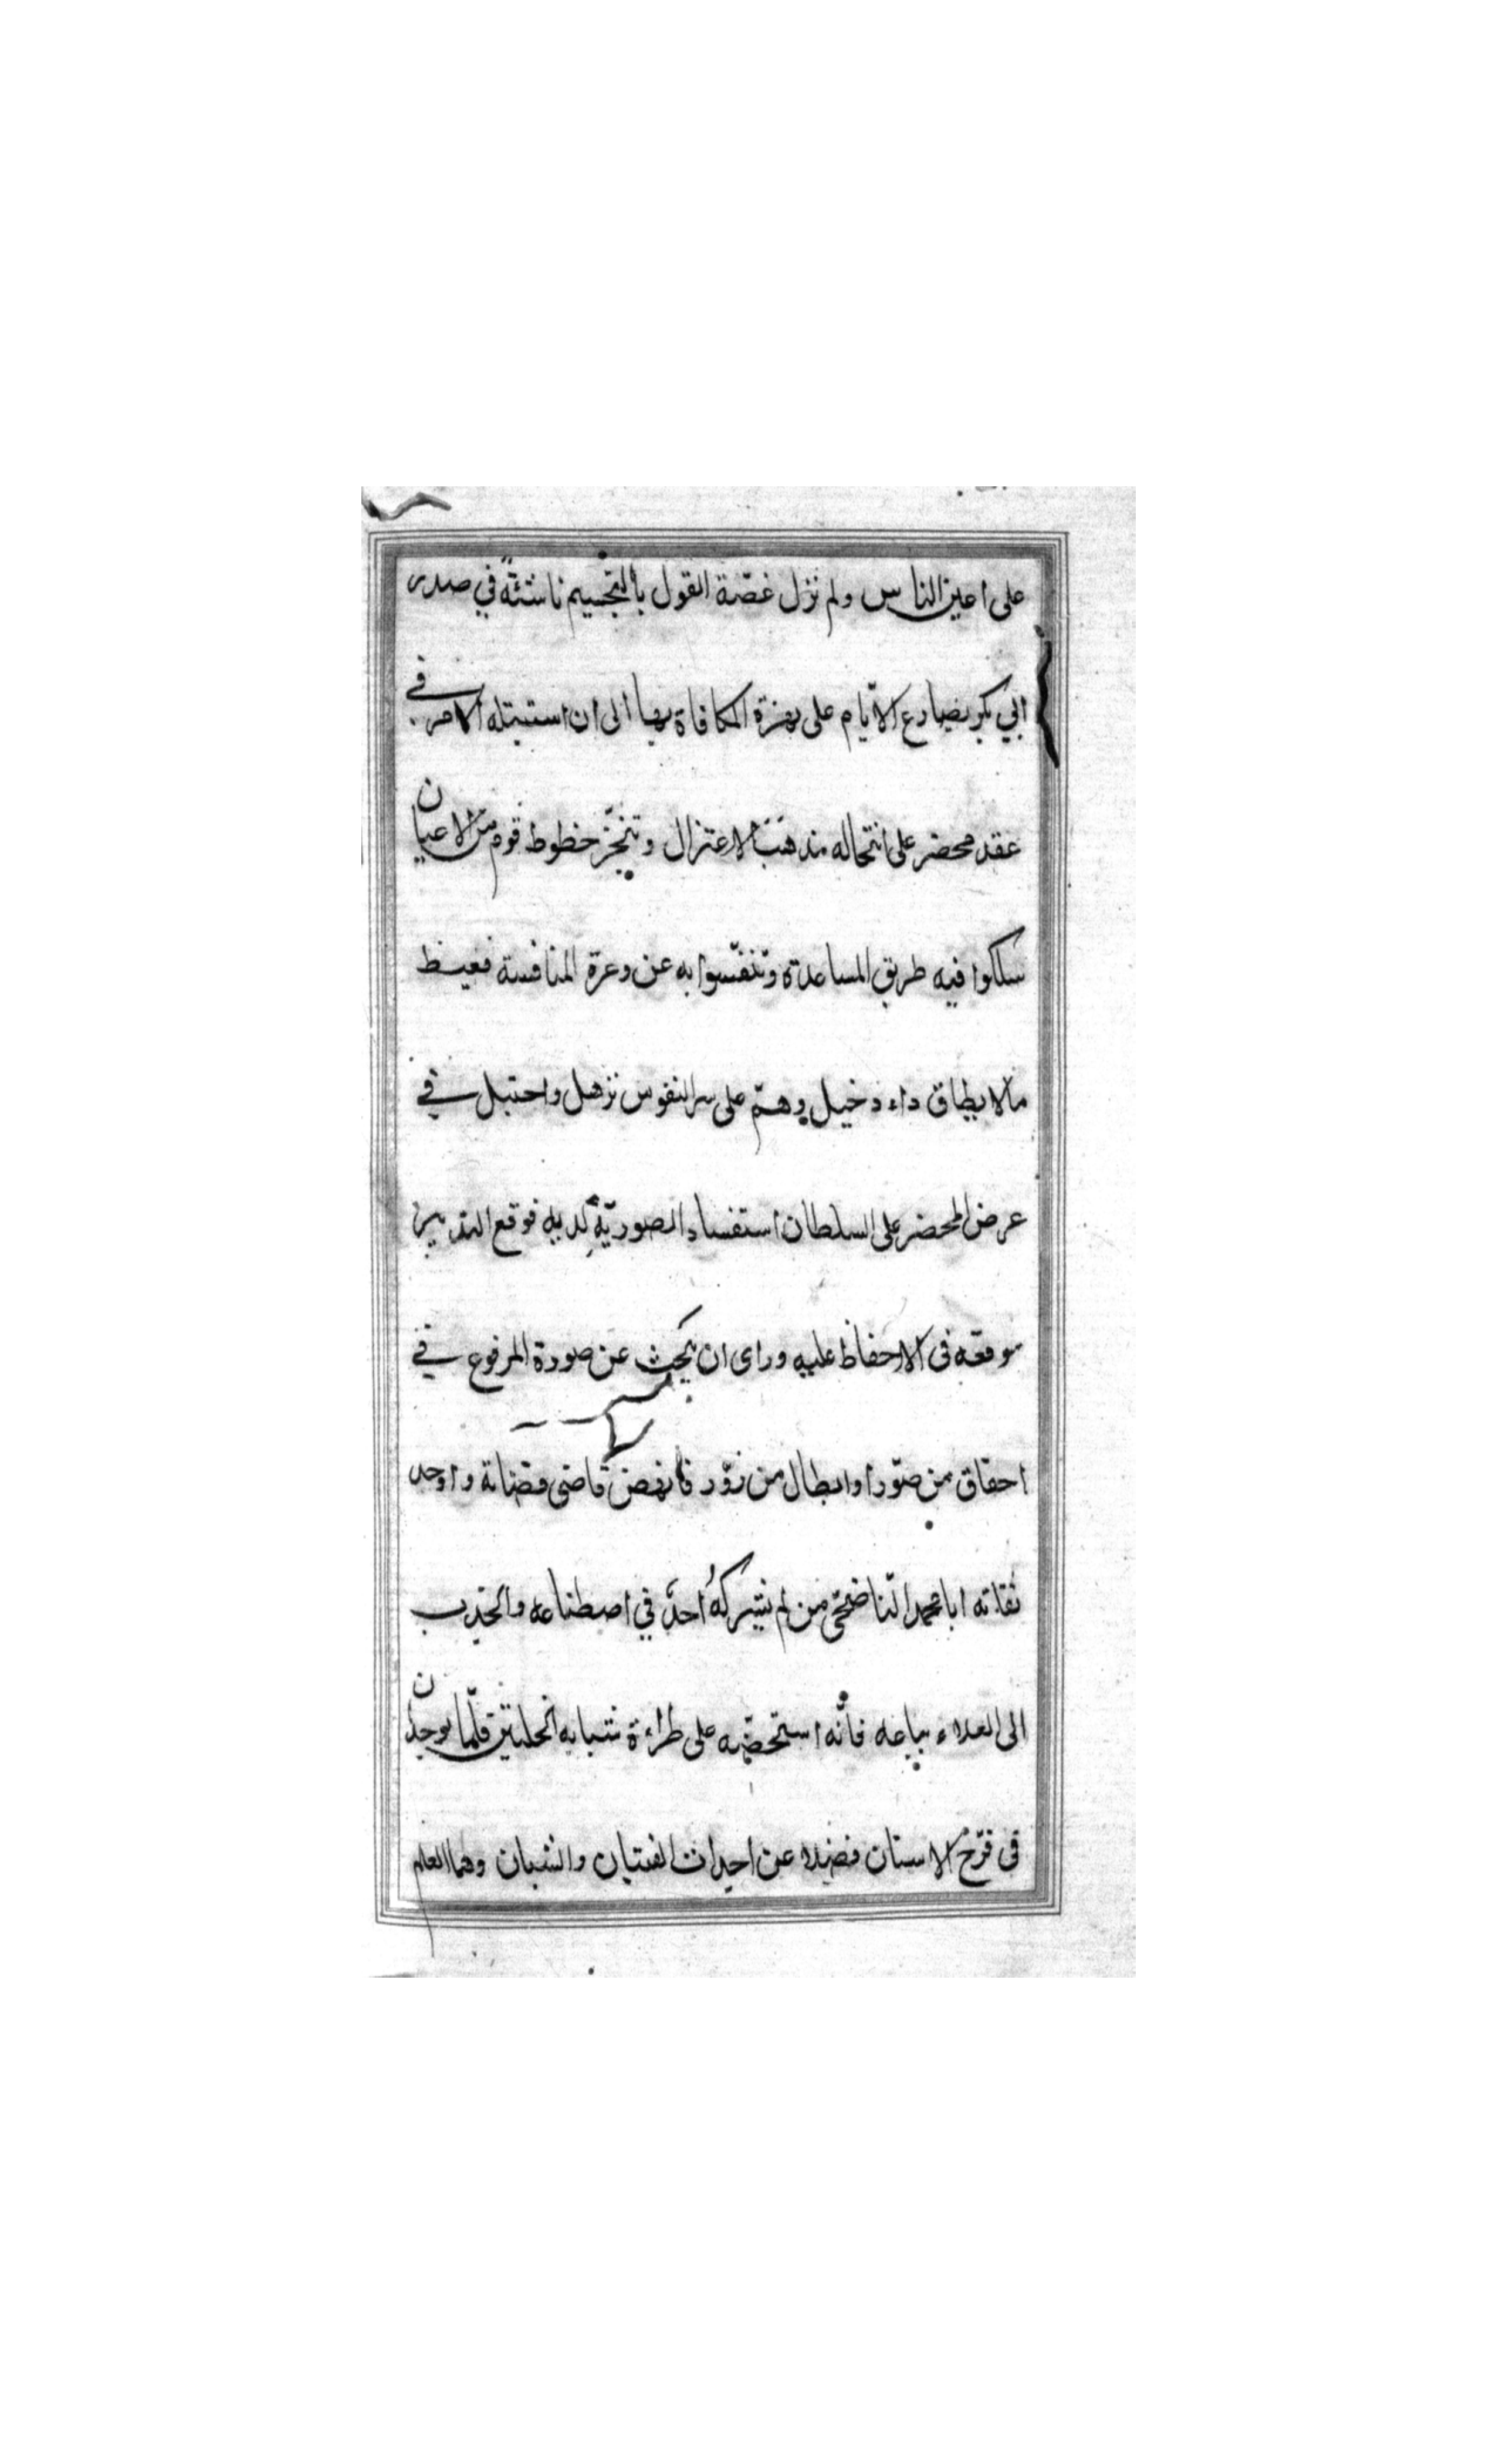 على اعين الناس ولم تزل غصّة القول بالتجسيم ناشئة في صدر
ابي بكر يصارع الايّام على نهزة المكافاة بها الى ان استتبّ له الامر في
عقد محضر على انتحاله مذهب الاعتزال وتنجّز خطوط قوم من الاعيان
سلكوا فيه طريق المساعدة وتنفّسوا به عن وغرة المنافسة فغيظ
مالا يطاق داء دخيل وهمّ على سر النفوس نزهل واحتيل في
عرض المحضر على السلطان استفساد الصوريّة لديه فوقع التدبير
موقعه في الاحفاظ عليه وراى ان يبحث عن صورة المرفوع في
احقاق من صوّر او ابطال من زوّر فانهض قاضى قضاته واوحد
ثقاته ابا محمد الناصحى من لم يشركه احد في اصطناعه والجذب
الى العلاء بباعه فانّه استحضّه على طراءة شبابه لخلتين قلّما يوجدان
في قرّح الاسنان فضلا عن احداث الفتيان والشبان وهما العلم